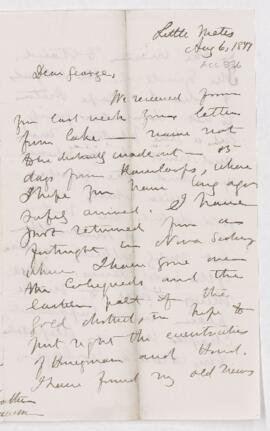 Little Metis
Aug 6, 1877
Dear George,
We received from
you last week your letter
from Lake — name not
to be distinctly made out — 25
days from Kamloops, where
I hope you have long ago
safely arrived. I have
just returned from a
fortnight in Nova Scotia
where I have gone over
the Cobequids and the
eastern part of the
gold district, in hope to
put right the
of Honeyman and Hind.
I have found my old views